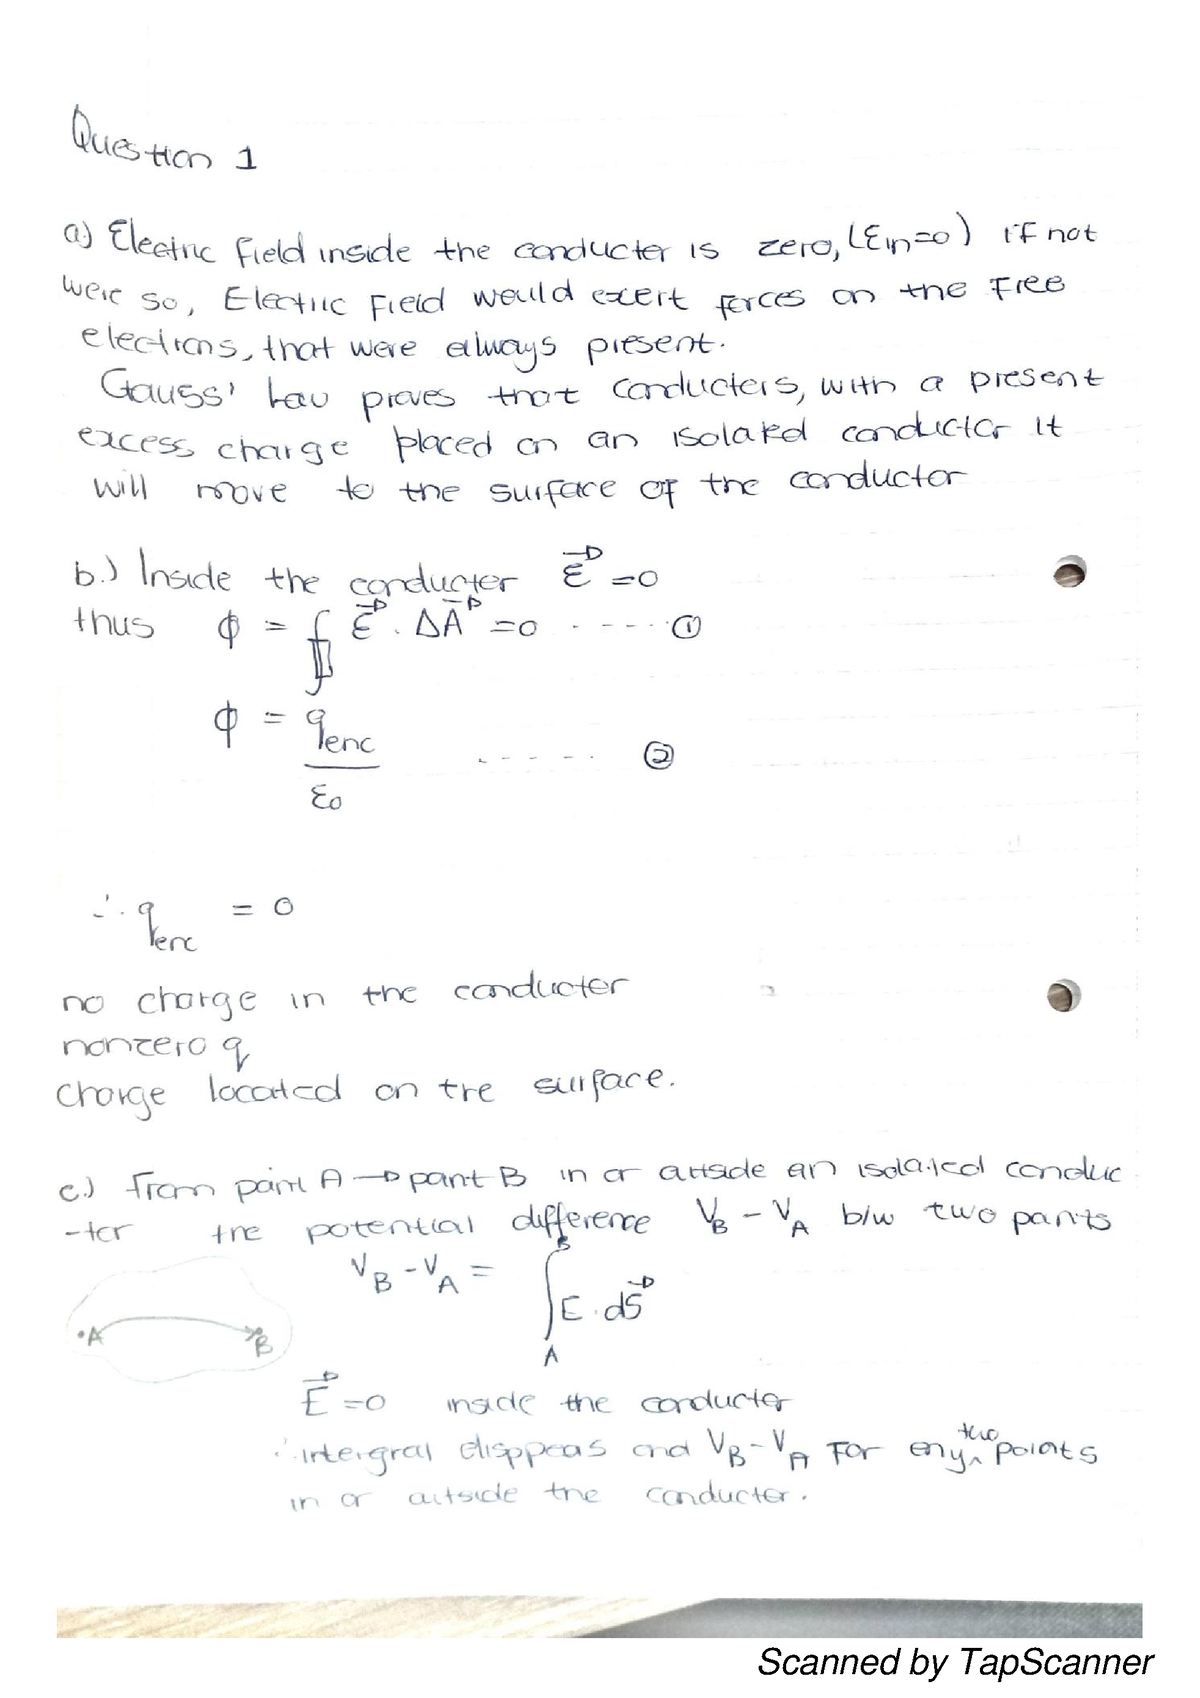 Question 1
a) Electric Field inside the conducter is zero, (Ein=0) if not
were so, Electric Field would excert forces on the Free
electrons, that were always present.
Gauss' Law proves that conducters, with a present
excess charge placed on an isolated conductor it
will move to the surface of the conductor
b.) Inside the conducter E⃗ =0
thus ϕ = ∮ E⃗ . ΔA⃗ =0 . - - - - . ①
ϕ = qenc
- - - - - . ②
ε0
∴ qenc = 0
no charge in the conductor
nonzero q
charge located on the surface.
c.) From point A → point B in or outside an isolated conduc
-tor the potential difference VB - VA b/w two points
VB - VA = ∫ E . dS⃗
B
A
• A
B
E⃗ =0 inside the conductor
∴ intergral disppeas and VB - VA For any two points
in or outside the conductor.
Scanned by TapScanner